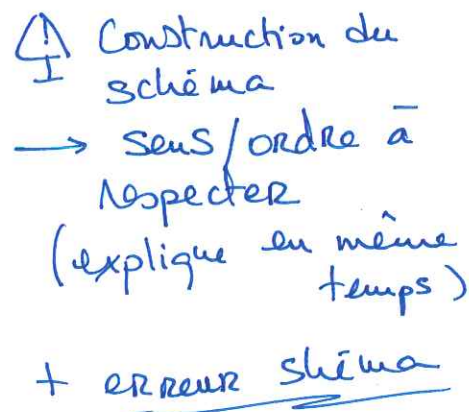 Construction du
schéma
→ sens/ordre à
respecter
(explique en même
temps)
+ erreur shéma